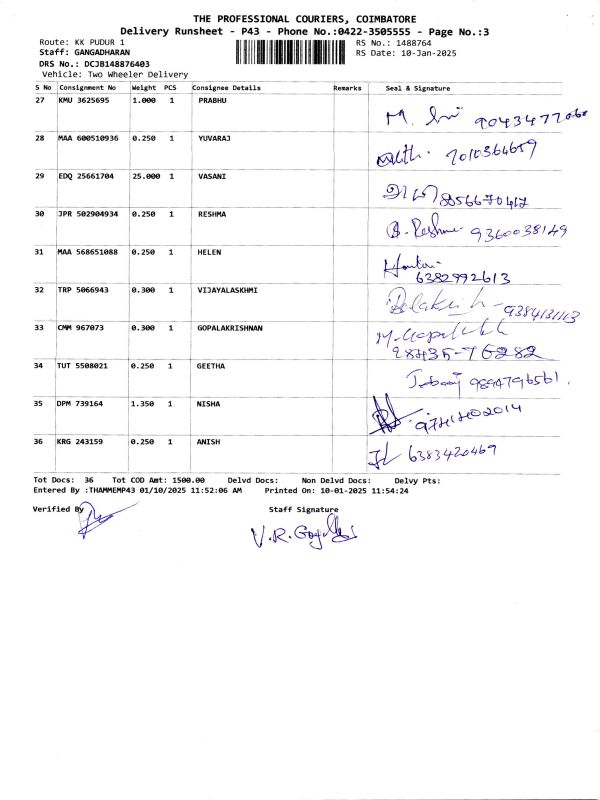 THE PROFESSIONAL COURIERS, COIMBATORE
Delivery Runsheet - P43 - Phone No.:0422-3505555 - Page No.:3
Route: KK PUDUR 1 RS No.: 1488764
Staff: GANGADHARAN RS Date: 10-Jan-2025
DRS No.: DCJB148876403
Vehicle: Two Wheeler Delivery
S No Consignment No Weight PCS Consignee Details Remarks Seal & Signature
27 KMU 3625695 1.000 1 PRABHU
28 MAA 600510936 0.250 1 YUVARAJ
7010364659
29 EDQ 25661704 25.000 1 VASANI
8056670412
30 JPR 502904934 0.250 1 RESHMA
B. Reshma 9360038149
31 MAA 568651088 0.250 1 HELEN
6382992613
32 TRP 5066943 0.300 1 VIJAYALASKHMI
9384131113
33 CMM 967073 0.300 1 GOPALAKRISHNAN
98435-76282
34 TUT 5508021 0.250 1 GEETHA
9894796561.
35 DPM 739164 1.350 1 NISHA
36 KRG 243159 0.250 1 ANISH
6383420469
Tot Docs: 36 Tot COD Amt: 1500.00 Delvd Docs: Non Delvd Docs: Delvy Pts:
Entered By :THAMMEMP43 01/10/2025 11:52:06 AM Printed On: 10-01-2025 11:54:24
Verified By Staff Signature
V.R.